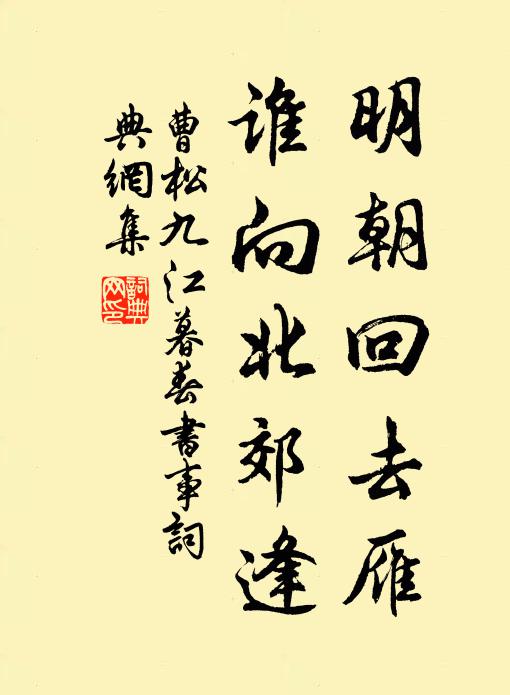 明朝回去雁
谁向北郊逢
曹松九江暮春書事詞
典網集
詞典
网印